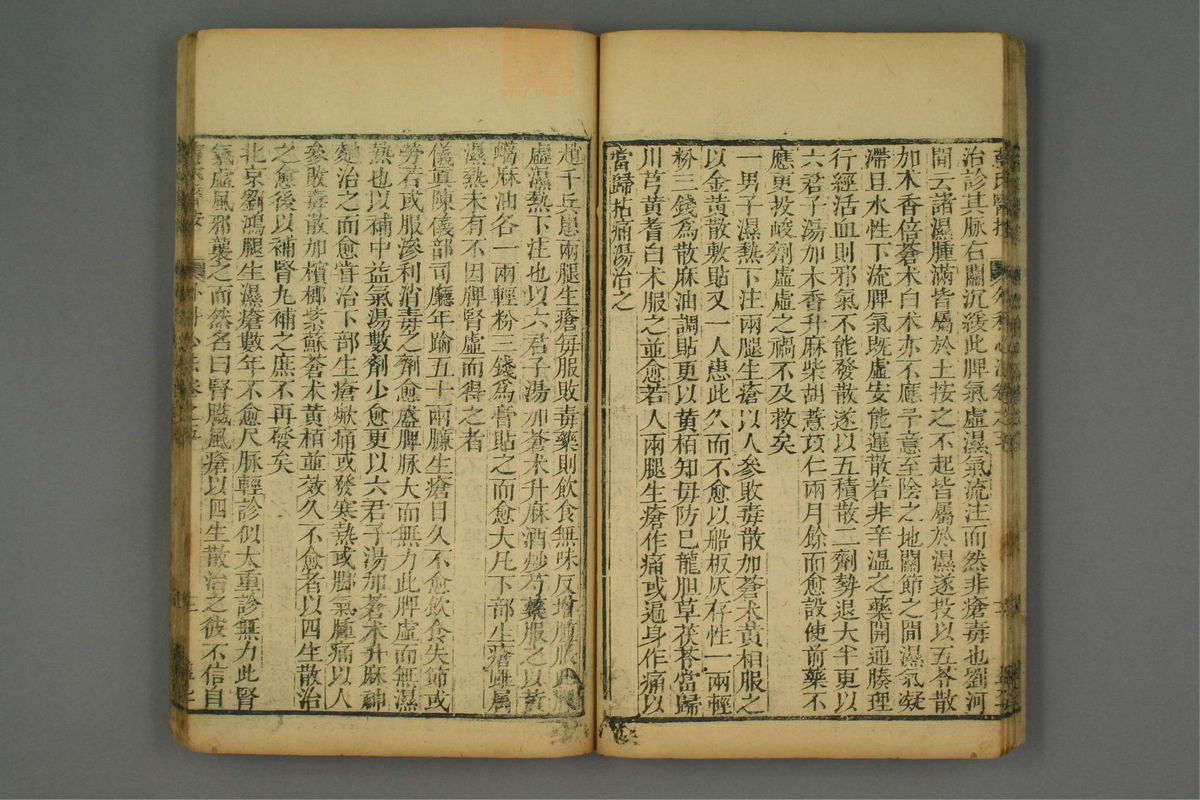 治診其脉右關沉緩此脾氣虛濕氣流注而然非瘡毒也劉河
間云諸濕腫滿皆屬於土按之不起皆屬於濕遂投以五苓散
加木香倍蒼朮白朮亦不應予意至陰之地關節之間濕氣凝
滯且水性下流脾氣既虛安能運散若非辛溫之藥開通腠理
行經活血則邪氣不能發散遂以五積散二劑勢退大半更以
六君子湯加木香升麻柴胡薏苡仁兩月餘而愈設使前藥不
應更投峻劑虛虛之禍不及救矣
一男子濕熱下注兩腿生瘡以人參敗毒散加蒼朮黃柏服之
以金黃散敷貼又一人患此久而不愈以船板灰存性一兩輕
粉三錢爲散麻油調貼更以黃栢知毋防巳龍胆草茯苓當歸
川芎黃耆白朮服之並愈若人兩腿生瘡作痛或遍身作痛以
當歸拈痛湯治之
趙千兵患兩腿生瘡每服敗毒藥則飲食無味反增腫脹此脾
虛濕熱下注也以六君子湯加蒼朮升麻酒炒芍藥服之以黃
蠟麻油各一兩輕粉三錢爲膏貼之而愈大凡下部生瘡雖屬
濕熱未有不因脾腎虛而得之者
儀真陳儀部司廳年踰五十兩臁生瘡日久不愈飲食失節或
勞若或服滲利消毒之劑愈盛脾脉大而無力此脾虛而無濕
熱也以補中益氣湯數劑少愈更以六君子湯加蒼朮升麻神
麯治之而愈嘗治下部生瘡焮痛或發寒熱或脚氣腫痛以人
參敗毒散加檳榔紫蘇蒼朮黃栢並效久不愈者以四生散治
之愈後以補腎丸補之庶不再發矣
北京劉鴻腿生濕瘡數年不愈尺脉輕診似大重診無力此腎
氣虛風邪襲之而然名曰腎臟風瘡以四生散治之彼不信自